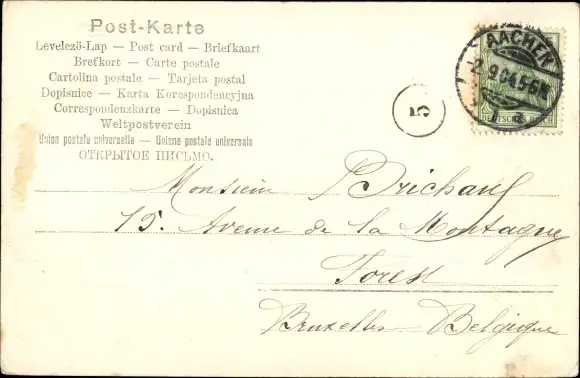 Post-Karte
Levelező-Lap — Post card — Briefkaart
Brefkort — Carte postale
Cartolina postale — Tarjeta postal
Dopisnice — Karta Korespondencyjna
Correspondenzkarte — Dopisnica
Weltpostverein
Union postale universelle — Unione postale universale
ОТКРЫТОЕ ПИСЬМО.
AACHEN
2.9.04.5-6N
DEUTSCHES REICH
5
Monsieur Brichaux
15. Avenue de la Montagne
Forest
Bruxelles Belgique